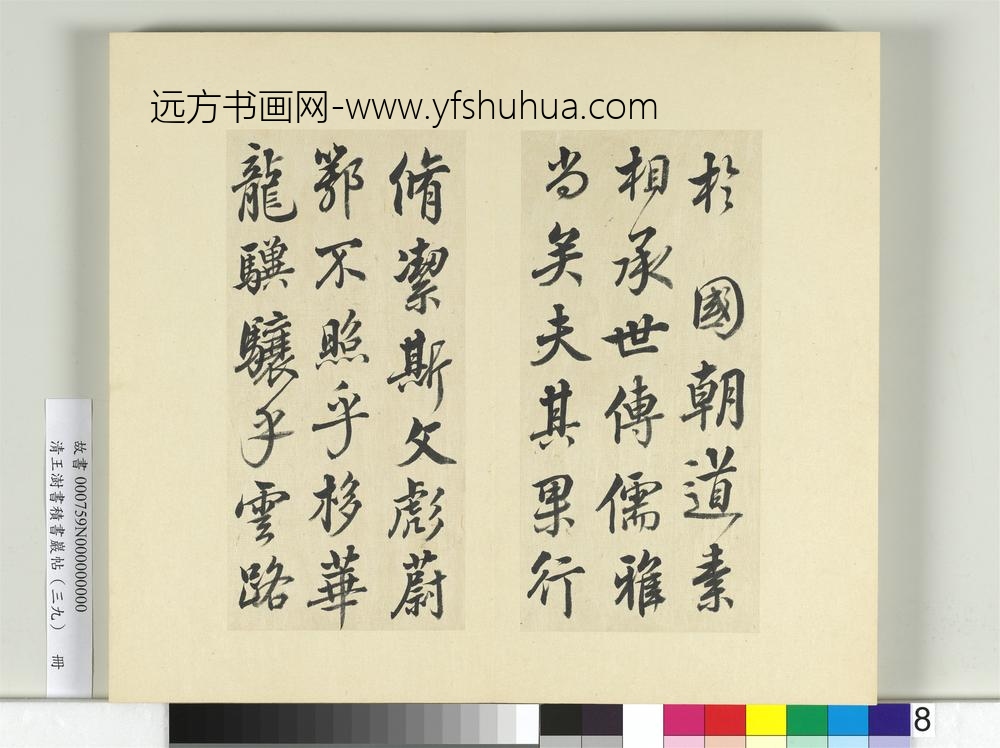 远方书画网-www.yfshuhua.com
於國朝道素
相承世傳儒雅
尚矣夫其果行
脩潔斯文彪蔚
鄂不照乎移華
龍驥驤乎雲路
故書 000759N000000000
清王澍書積書巖帖（三九） 冊
8